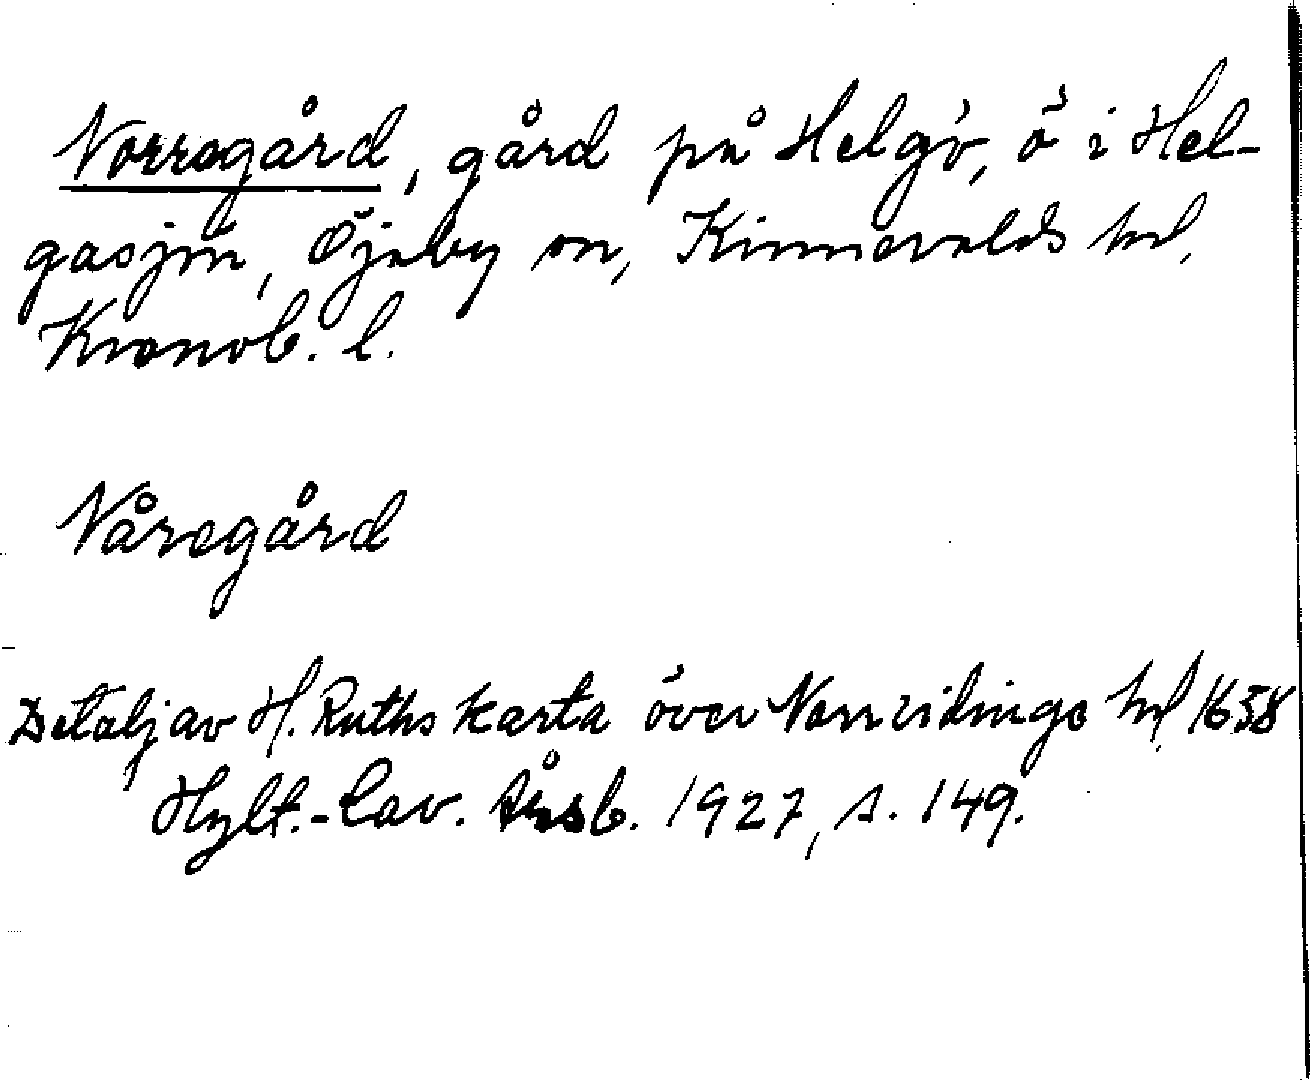 Norregård, gård på Helgö, ö i Hel-
gasjön, Öjaby sn, Kinnevalds hd,
Kronob. l.
Våregård
Detalj av H. Ruths karta över Norrvidinge hd 1658
Hylt.-Cav. Årsb. 1927, s. 149.